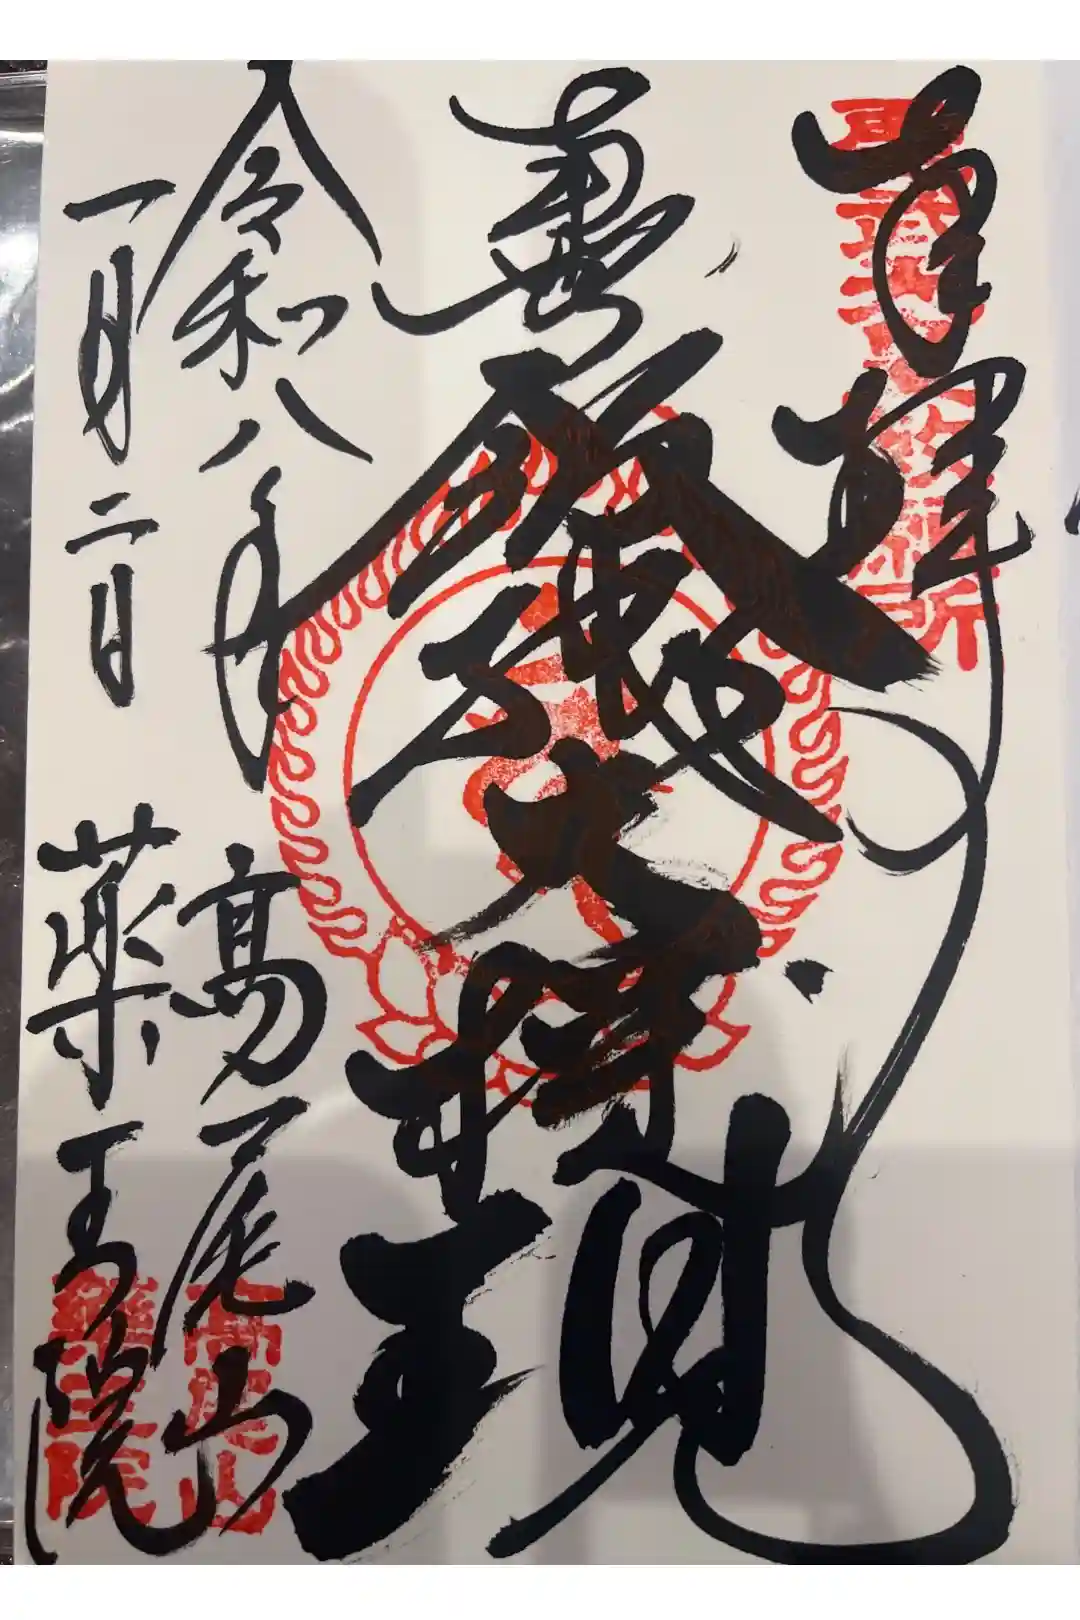 奉拝
飯縄大権現
令和八年
一月二日
高尾山
薬王院
高尾山
薬王院